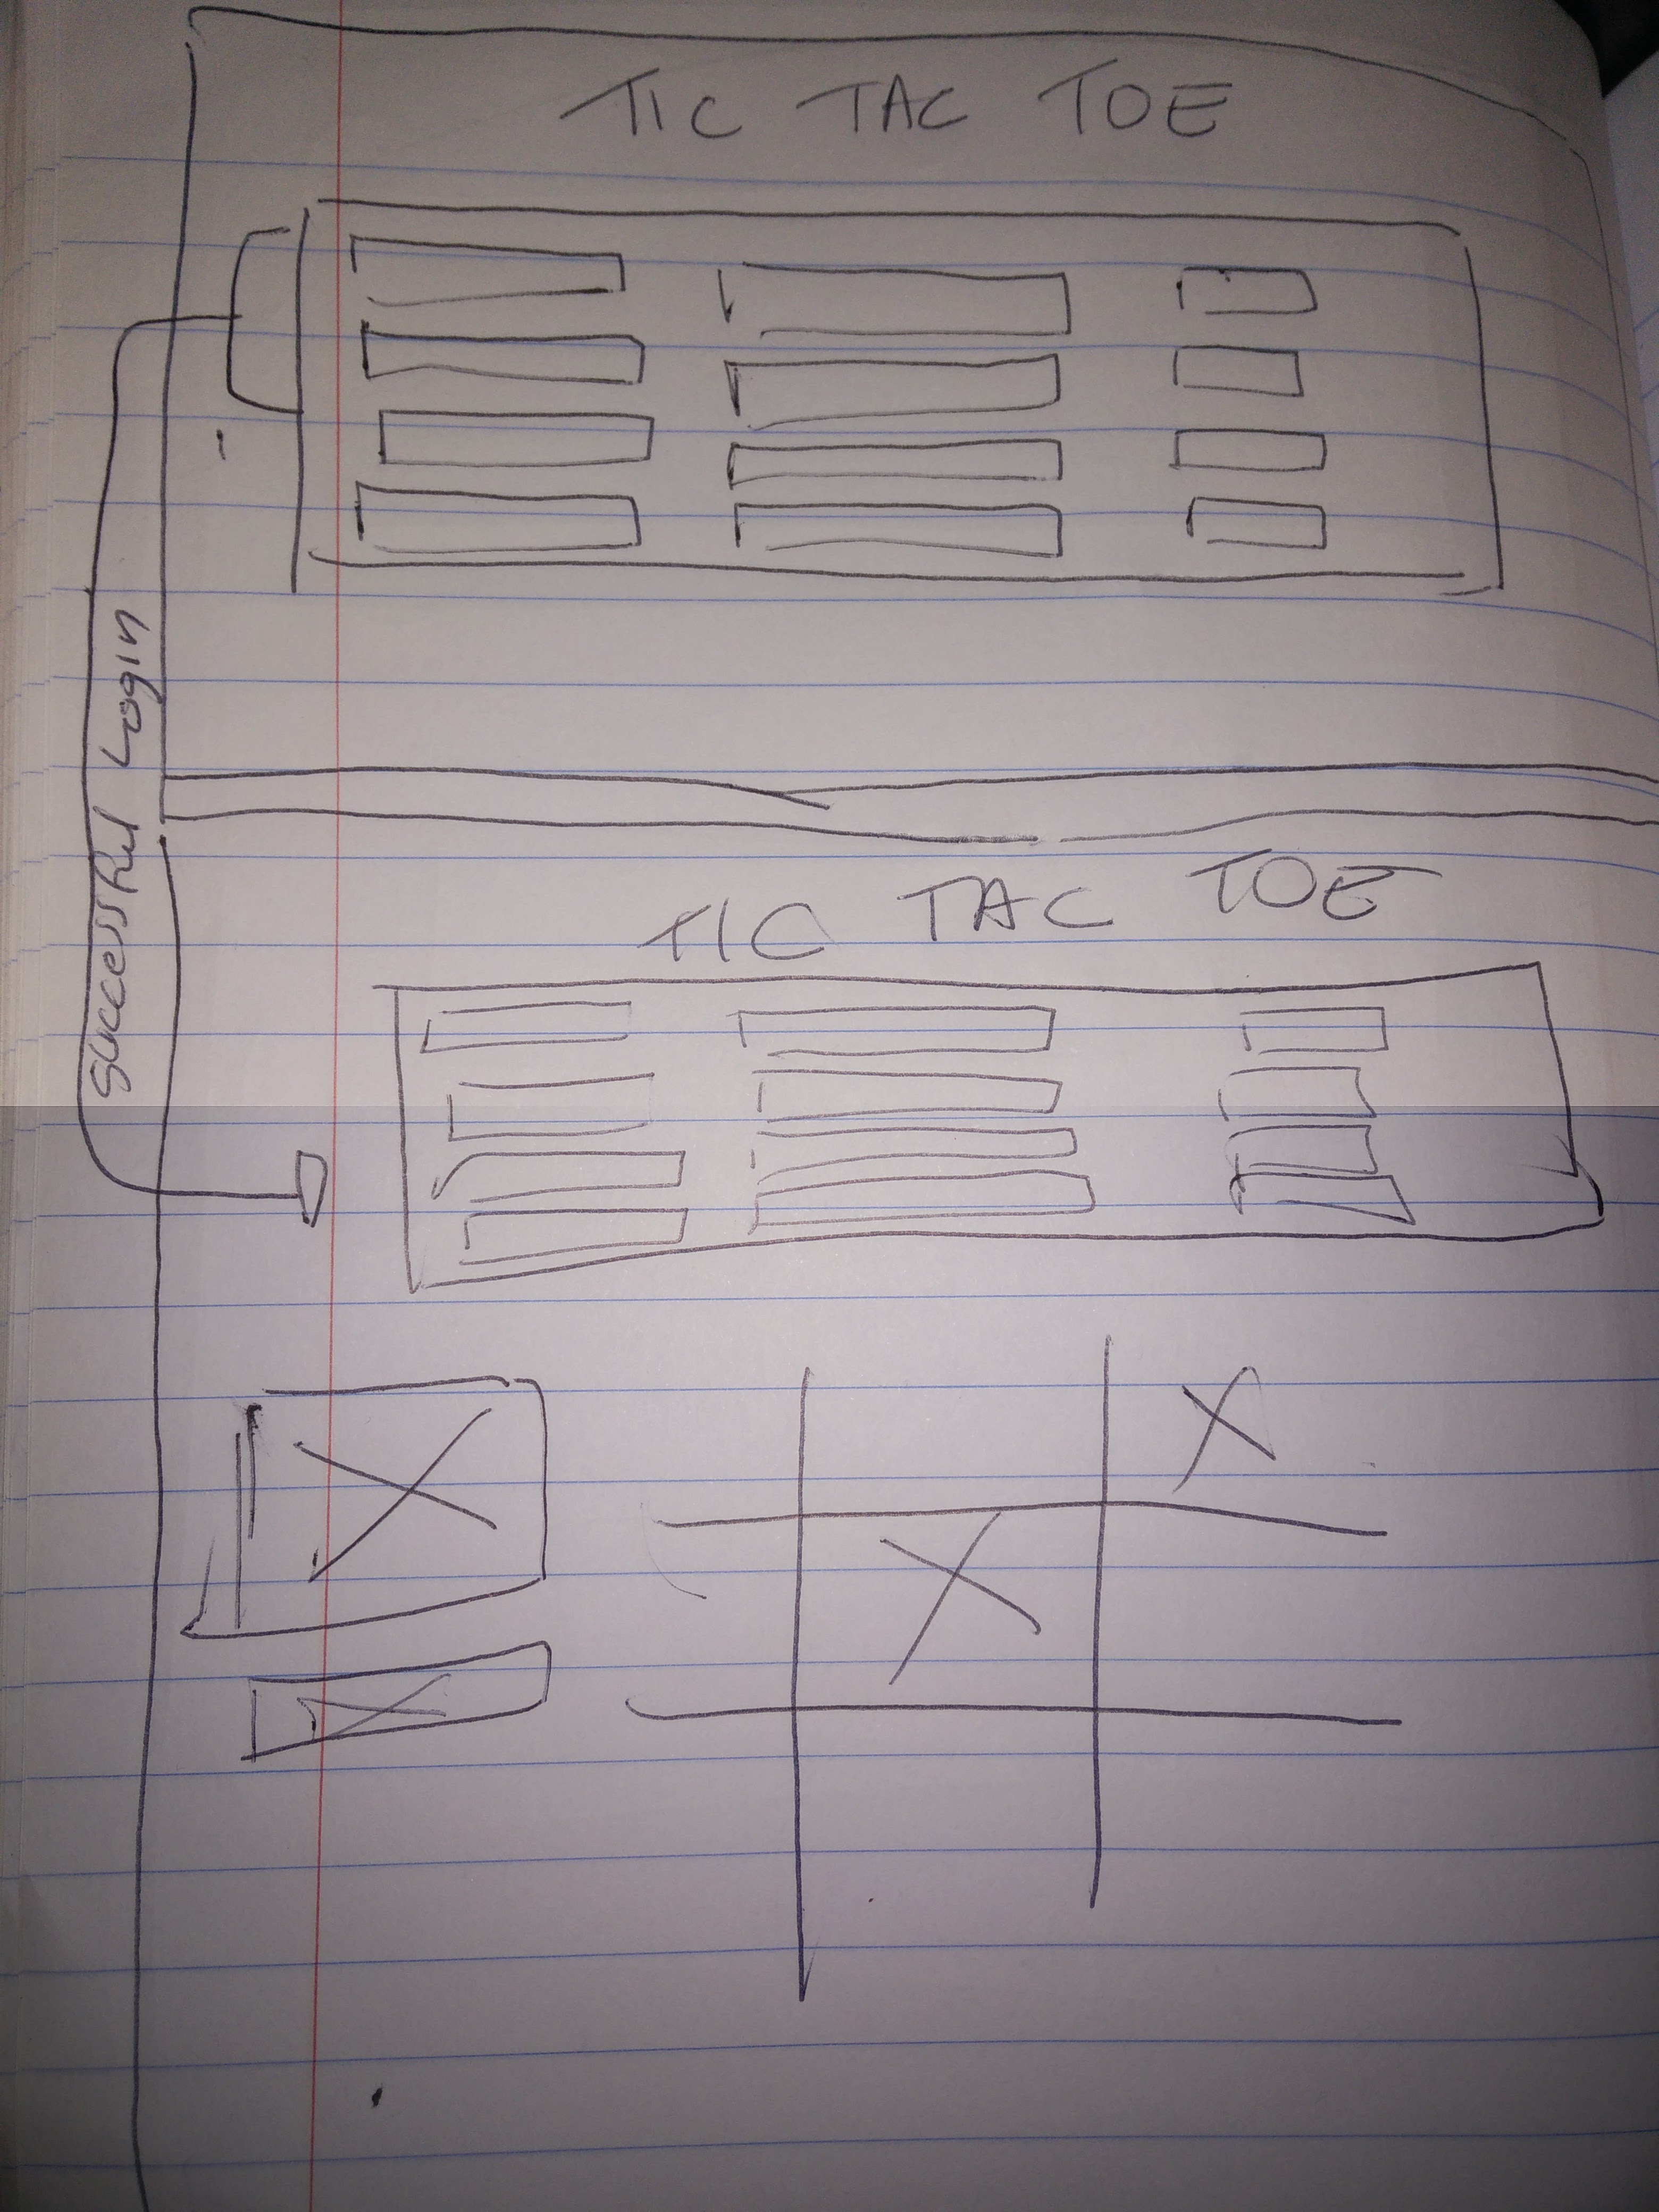 TIC TAC TOE
Successful Login
TIC TAC TOE
X
X
X
X